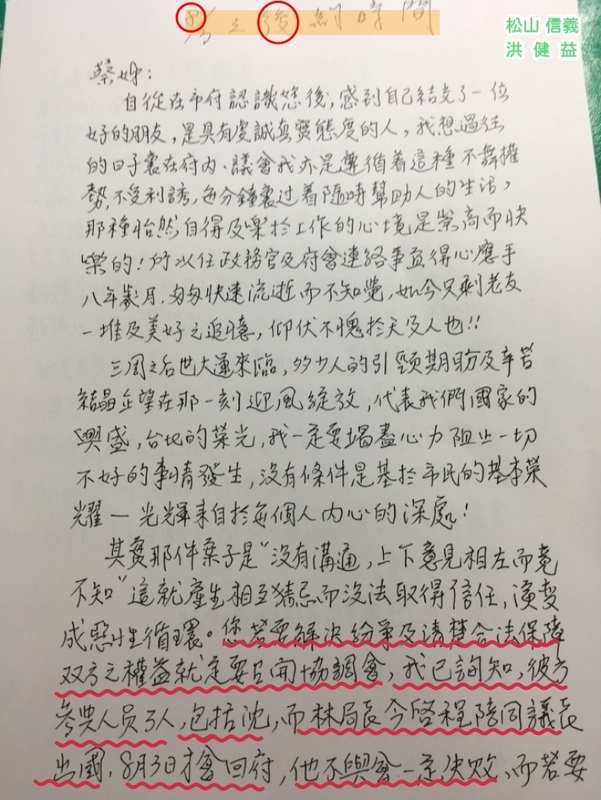 松山 信義
洪 健 益
蔡姊:
自從在市府認識您後,感到自己結交了一位
好的朋友,是具有虔誠真實態度的人,我想過往
的日子裏在府內、議會我亦是遵循着這種不舞權
勢,不受利誘,每分鐘裏过着隨時幫助人的生活,
那種怡然自得及樂於工作的心境是崇高而快
樂的!所以任政務官及府會連絡事宜得心應手
八年歲月,匆匆快速流逝而不知覺,如今只剩老友
一堆及美好之追憶,仰伏不愧於天及人也!!
三周之后世大運來臨,多少人的引頸期盼及辛苦
結晶企望在那一刻迎風綻放,代表我們國家的
興盛,台北的榮光,我一定要竭盡心力阻止一切
不好的事情發生,沒有條件是基於市民的基本榮
耀一光輝來自於每個人內心的深處!
其實那件案子是"沒有溝通,上下意見相左而竟
不知"這就產生相互猜忌而沒法取得信任,演变
成惡性循環。您若要解決紛爭及清楚合法保障
双方之權益就定要召開協調會,我已詢知,彼方
參與人員3人,包括沈,而林局長今啓程陪同議長
出國,8月3日才會回府,他不與會一定失敗,而若要